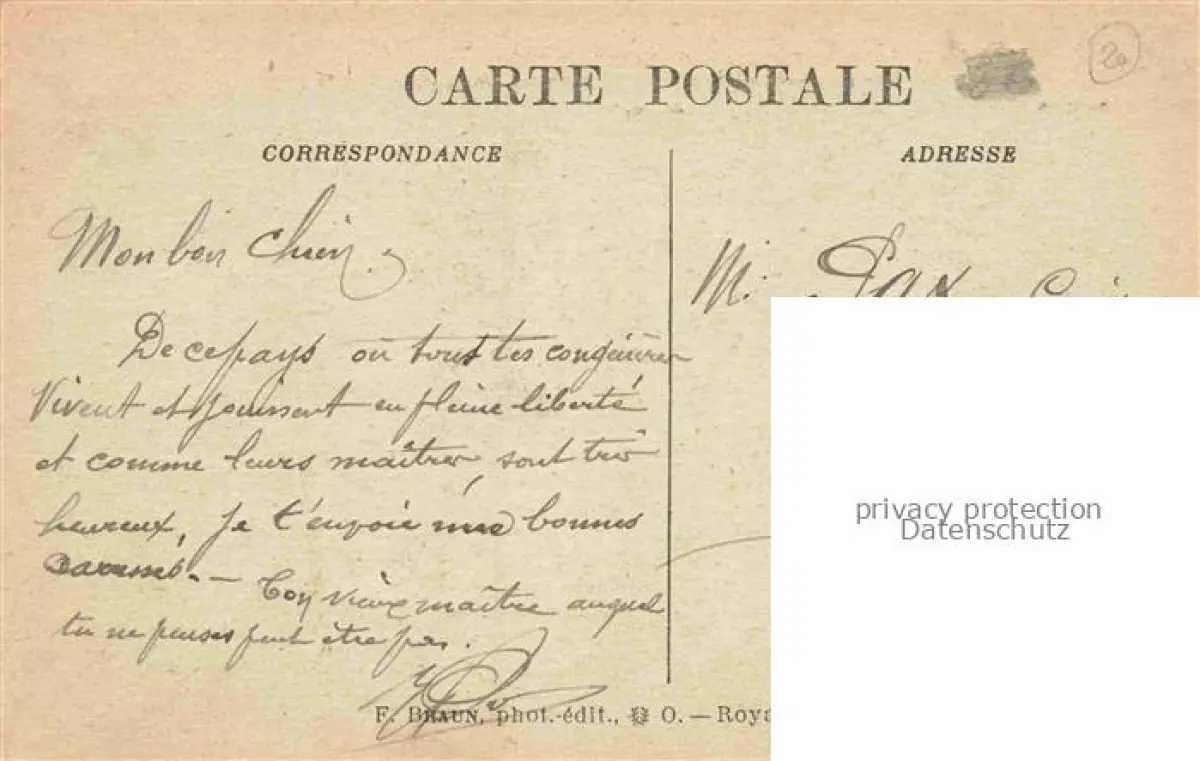 20
CARTE POSTALE
CORRESPONDANCE
ADRESSE
Mon bon Chien.
De ce pays où tous tes congénères
vivent et jouissent en pleine liberté
et comme leurs maîtres, sont très
heureux, je t'envoie mes bonnes
caresses. —
Ton vieux maître auquel
tu ne penses peut être pas.
M. Pax
privacy protection
Datenschutz
F. BRAUN, phot.-édit., O. — Roya